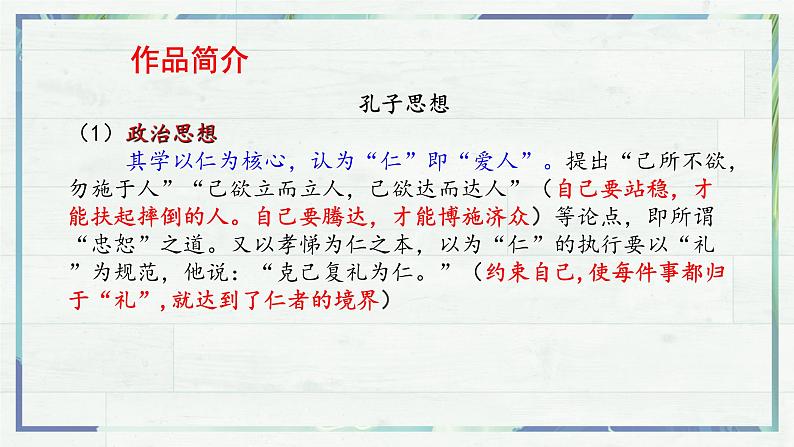 作品简介
孔子思想
（1）政治思想
其学以仁为核心，认为“仁”即“爱人”。提出“己所不欲，
勿施于人”“己欲立而立人，己欲达而达人”（自己要站稳，才
能扶起摔倒的人。自己要腾达，才能博施济众）等论点，即所谓
“忠恕”之道。又以孝悌为仁之本，以为“仁”的执行要以“礼
”为规范，他说：“克己复礼为仁。”（约束自己,使每件事都归
于“礼”,就达到了仁者的境界）